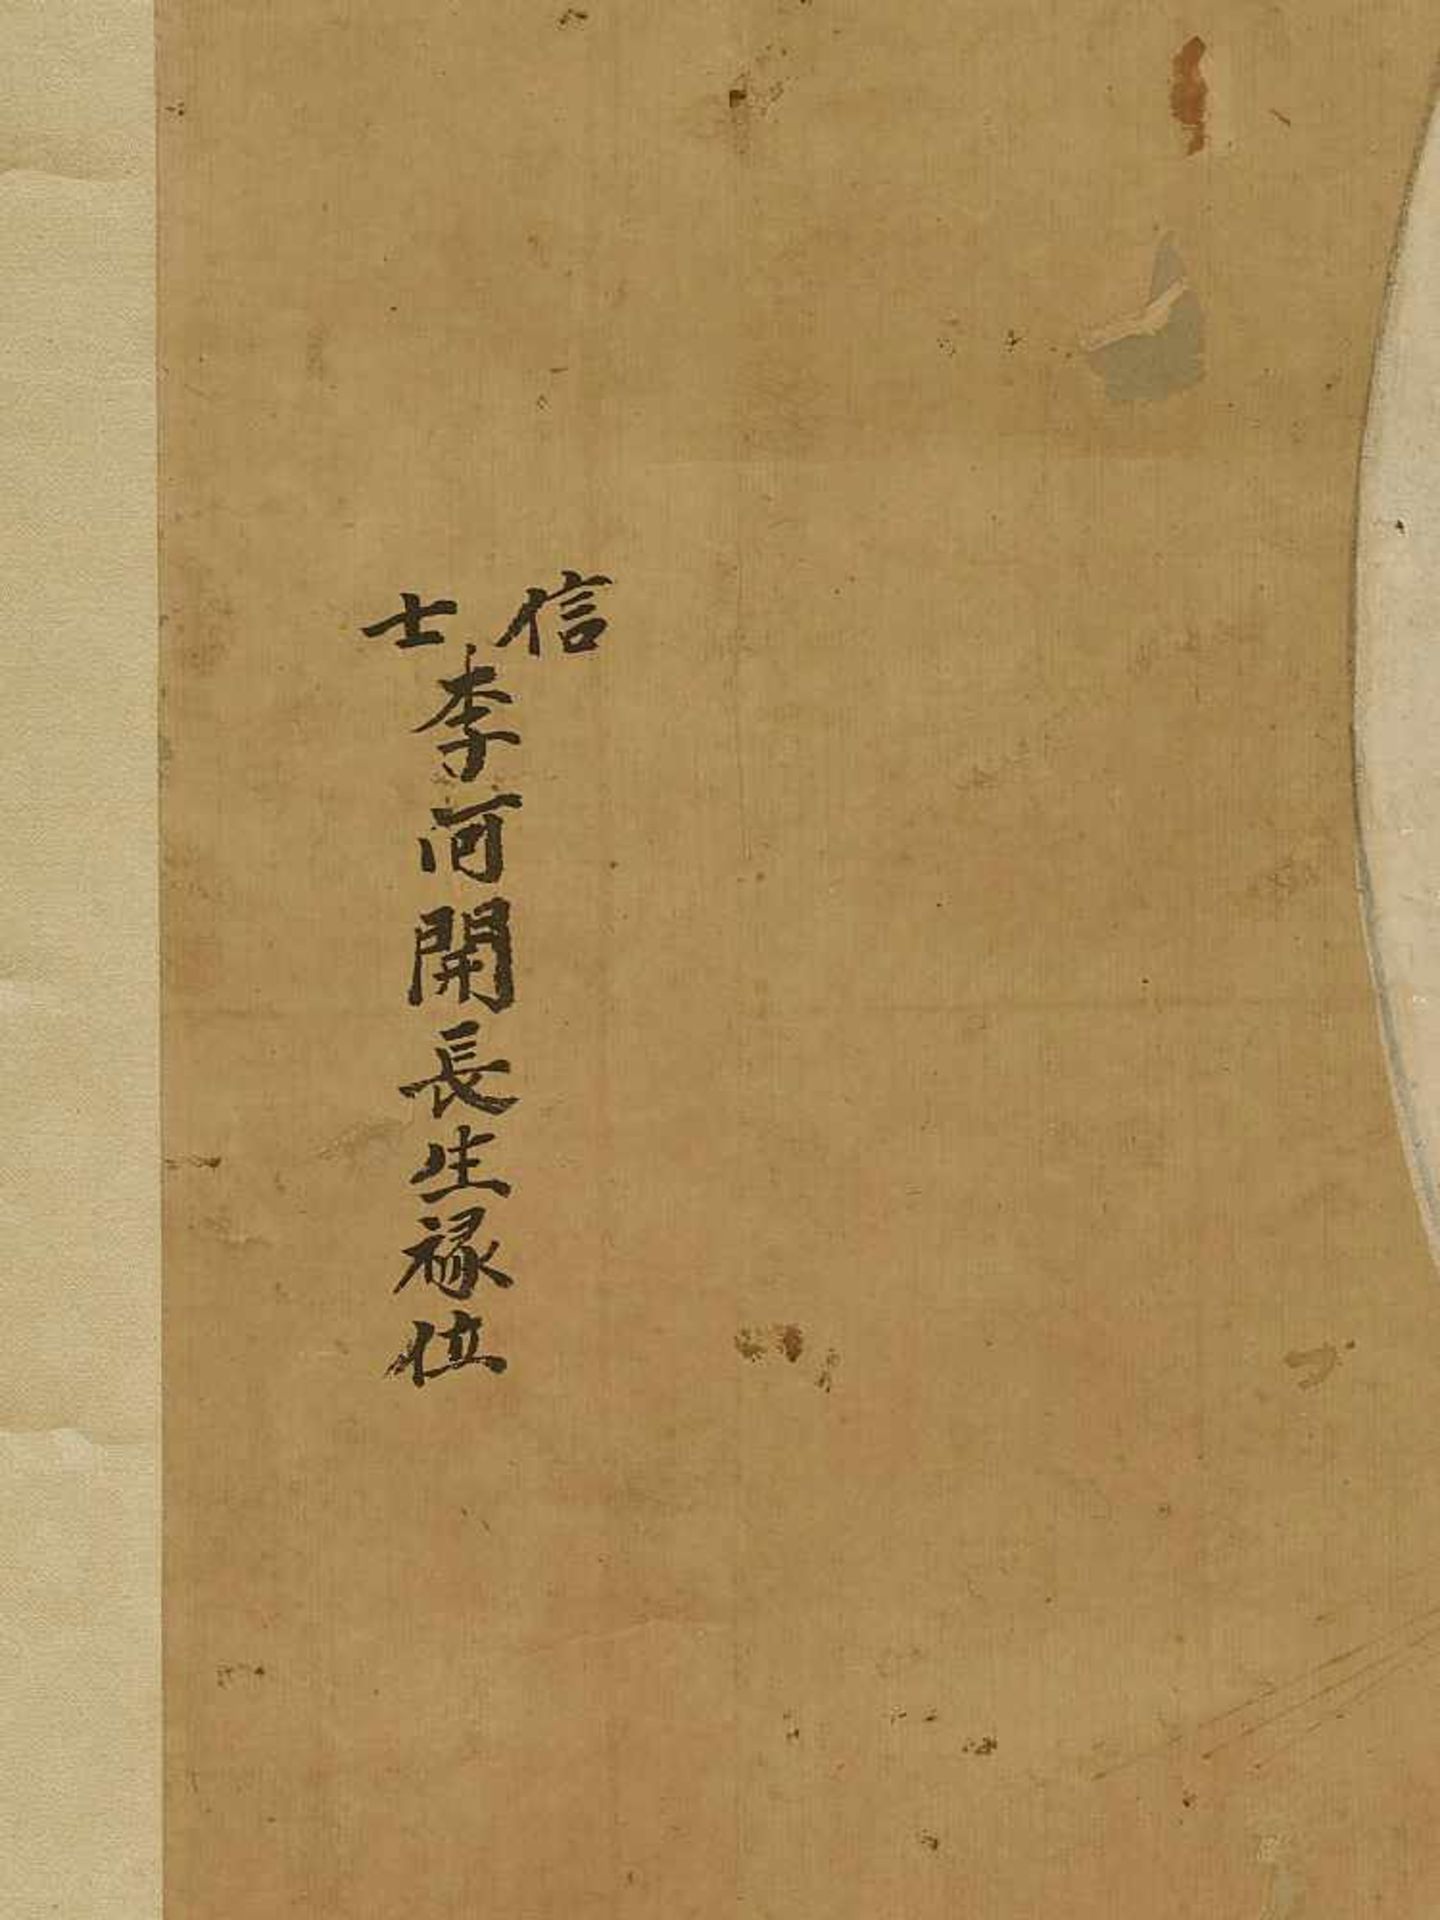 信士
李河開長生祿位